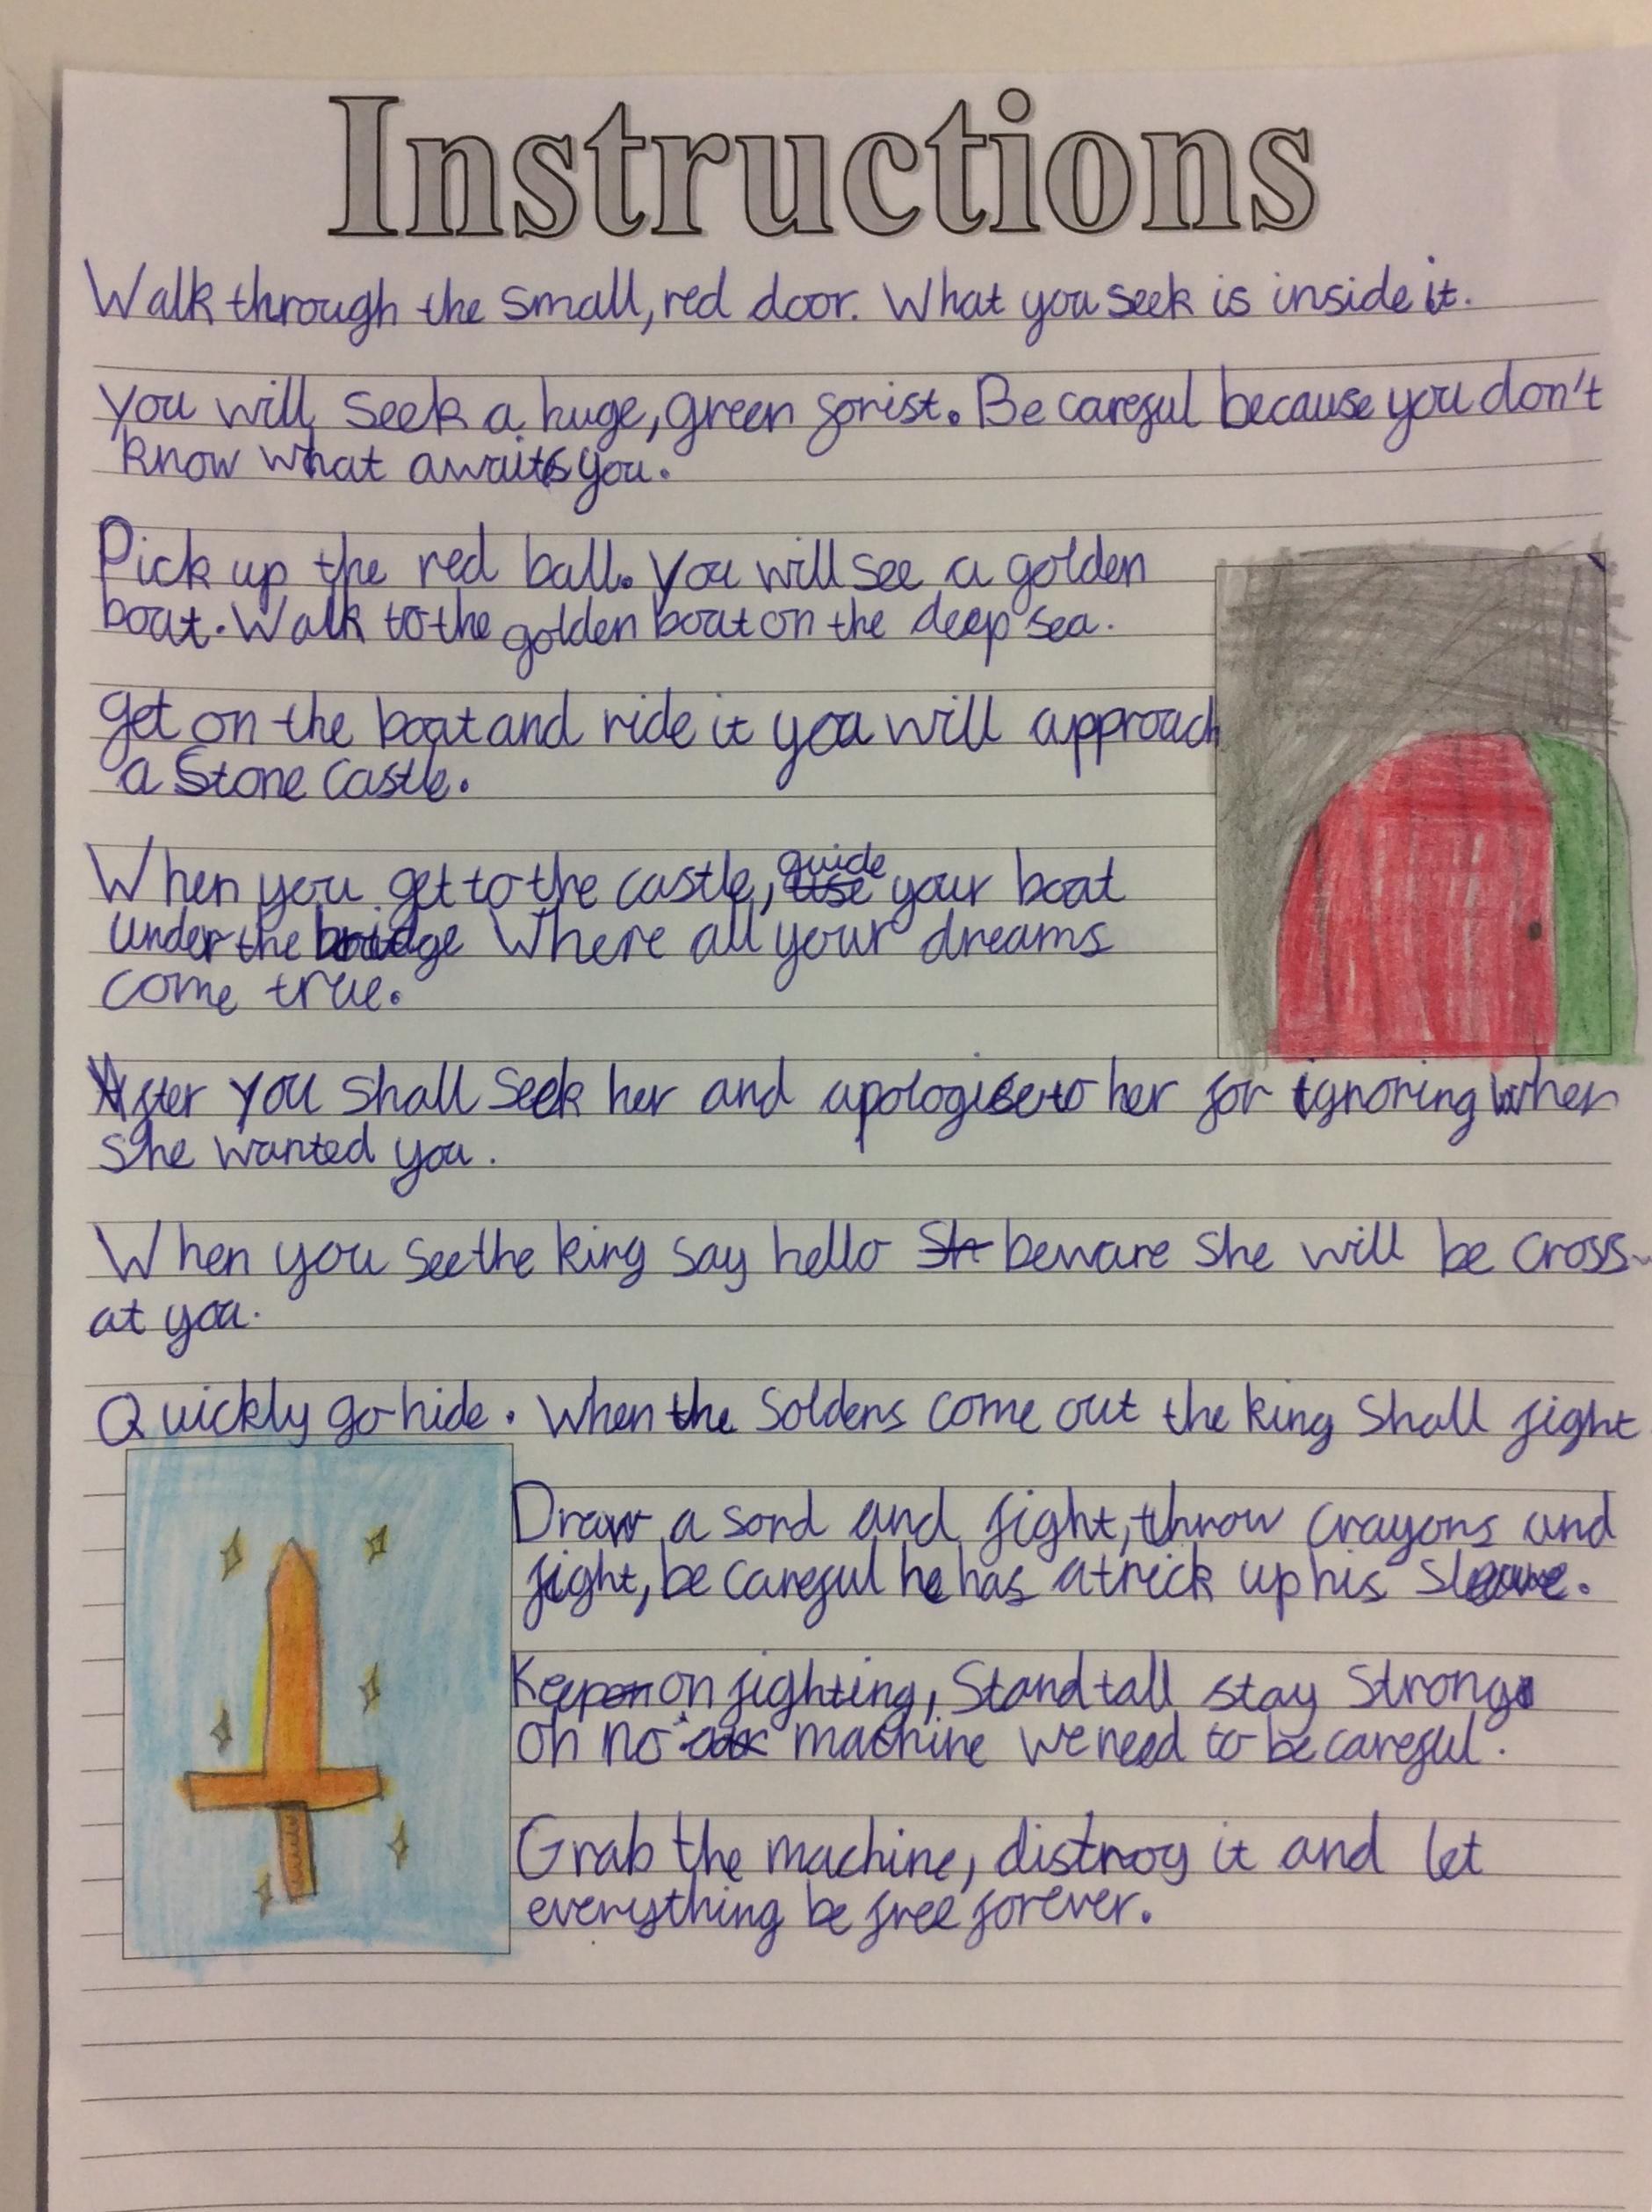 Instructions
Walk through the small, red door. What you seek is inside it.
you will seek a huge, green forist. Be careful because you don't
know what awaits you.
Pick up the red ball. You will see a golden
boat. Walk to the golden boat on the deep sea.
get on the boat and ride it you will approach
a Stone Castle.
When you get to the castle, guide your boat
under the bridge Where all your dreams
come true.
After you shall seek her and apologise to her for ignoring when
she wanted you.
When you see the king say hello beware she will be cross
at you.
Quickly go hide. When the Solders come out the king Shall fight
Draw a sord and fight, throw crayons and
fight, be careful he has a trick up his
Keep on fighting, Stand tall stay Strong
oh no machine we need to be careful.
Grab the machine, distroy it and let
everything be free forever.